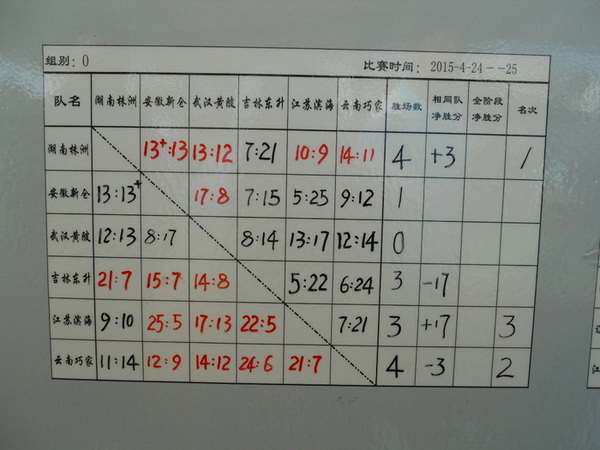 组别：0 比赛时间：2015-4-24--25
队名 湖南株洲 安徽新仑 武汉黄陂 吉林东升 江苏滨海 云南巧家 胜场数 相同队净胜分 全阶段净胜分 名次
湖南株洲 13+:13 13:12 7:21 10:9 14:11 4 +3 1
安徽新仑 13:13+ 17:8 7:15 5:25 9:12 1
武汉黄陂 12:13 8:17 8:14 13:17 12:14 0
吉林东升 21:7 15:7 14:8 5:22 6:24 3 -17
江苏滨海 9:10 25:5 17:13 22:5 7:21 3 +17 3
云南巧家 11:14 12:9 14:12 24:6 21:7 4 -3 2